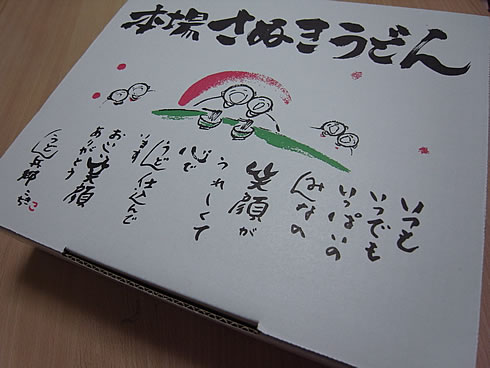 本場さぬきうどん
いつも
いつでも
いっぱいの
みんなの
笑顔が
うれしくて
心で
うどん仕込んで
います
おいしい笑顔
ありがとう